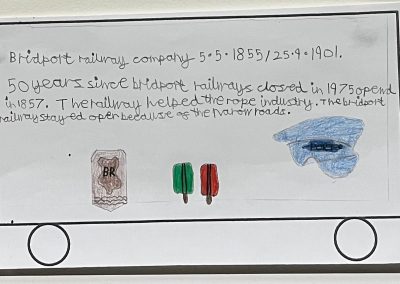 Bridport railway company 5.5.1855/25.9.1901.
50 years since bridport railways closed in 1975 opend
in 1857. The railway helped the rope industry. The bridport
railway stayed open because of the narow roads.
BR